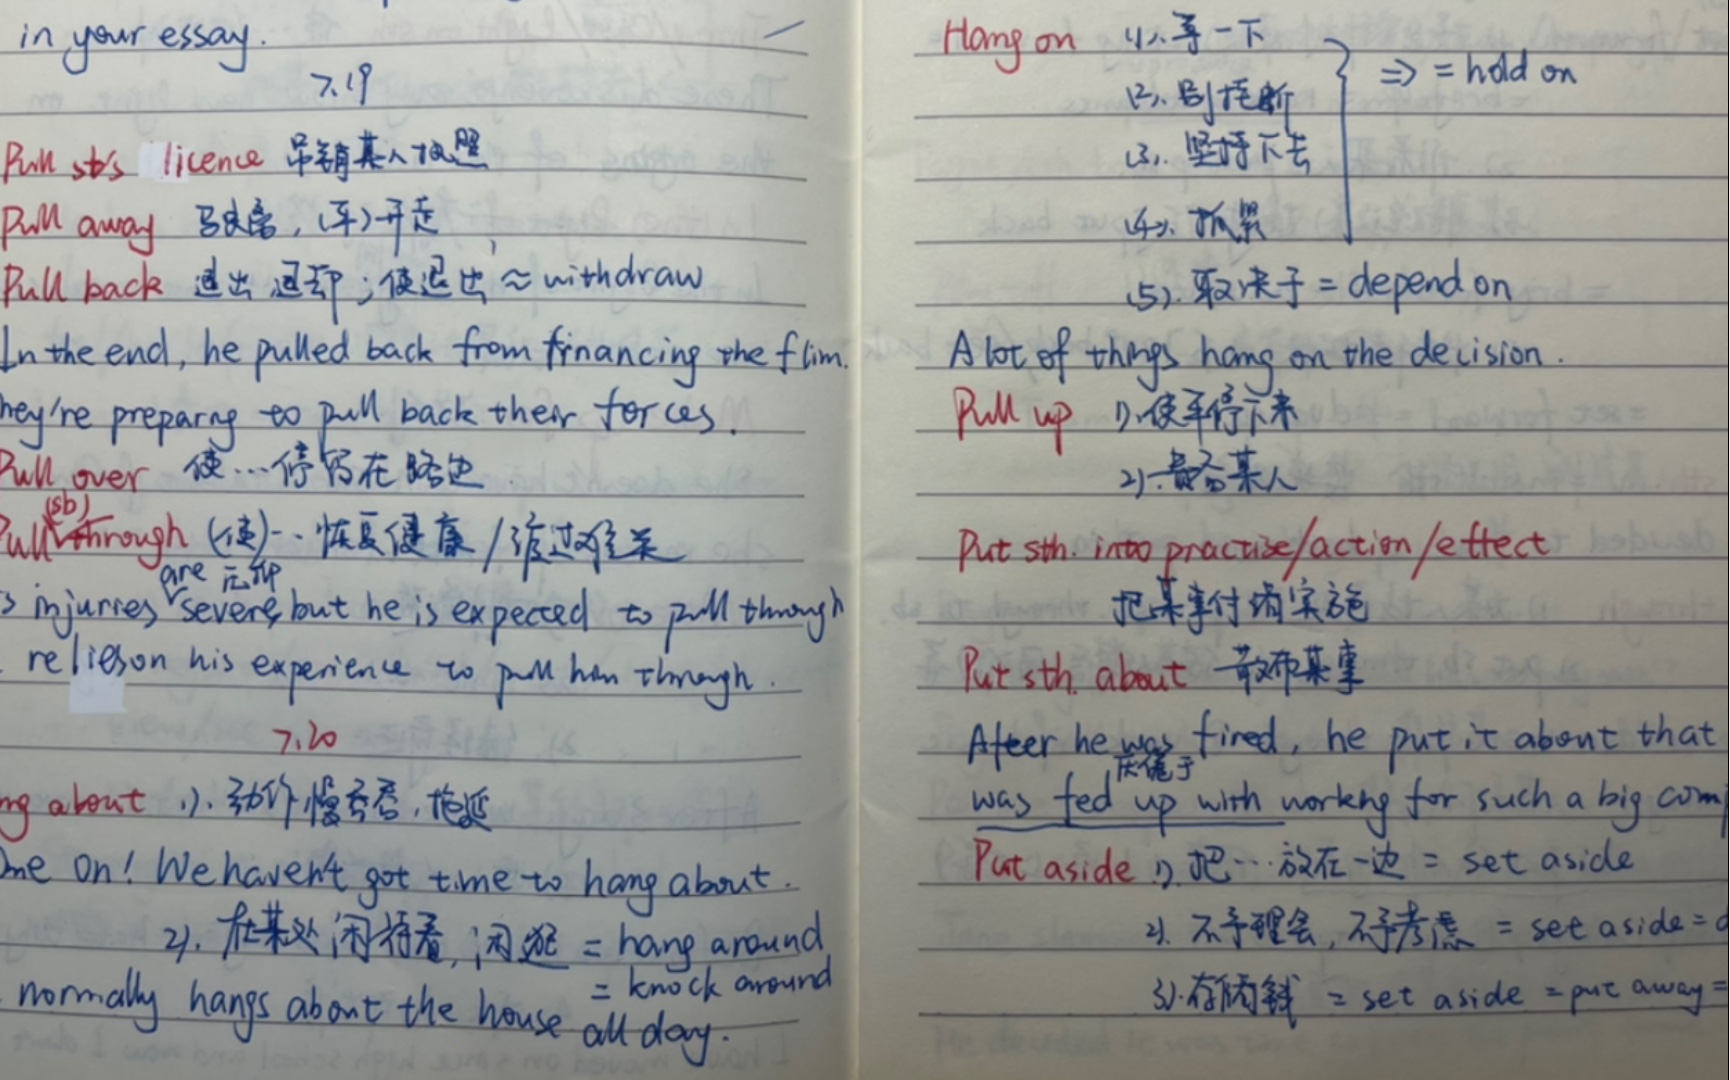 in your essay.
7.19
Pull sb's licence 吊销某人执照
Pull away 驶离，(车)开走
Pull back 退出 退却；使退出 ≈ withdraw
In the end, he pulled back from financing the flim.
hey're preparing to pull back their forces.
Pull over 使…停留在路边
(sb)
Pull through (使)… 恢复健康 / 渡过难关
are
s injuries severe, but he is expected to pull through
relies on his experience to pull him through.
7.20
ng about 1). 动作慢吞吞，拖延
ome on! We haven't got time to hang about.
2). 在某处闲待着，闲逛 = hang around
= knock around
normally hangs about the house all day.
Hang on (1). 等一下
(2). 别挂断
(3). 坚持下去
(4). 抓紧
=> = hold on
(5). 取决于 = depend on
A lot of things hang on the decision.
Pull up 1). 使车停下来
2). 责备某人
Put sth. into practise/action/effect
把某事付诸实施
Put sth. about 散布某事
After he was fired, he put it about that
厌倦于
was fed up with working for such a big com
Put aside 1). 把…放在一边 = set aside
2). 不予理会，不予考虑 = set aside =
3). 存储钱 = set aside = put away =